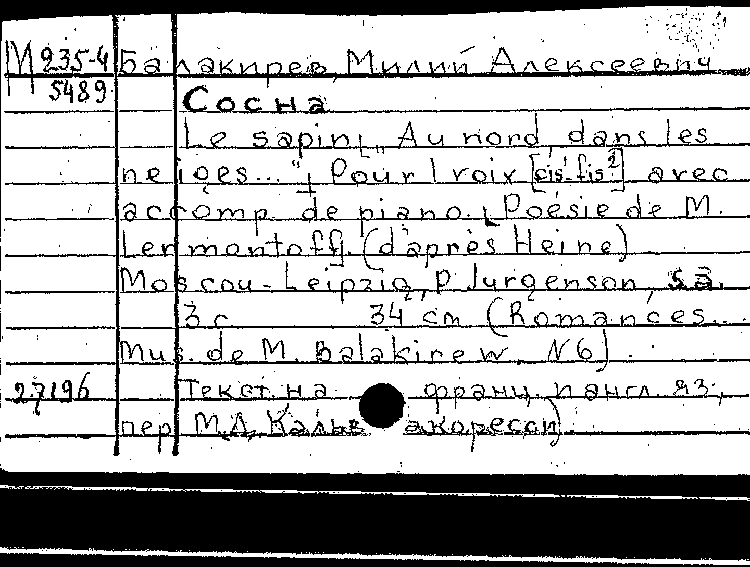 М 235-4 Балакирев, Милий Алексеевич
5489
Сосна
Le sapin [„Au nord, dans les
neiges..."] Pour 1 voix [cis¹-fis²] avec
accomp. de piano. [Poésie de M.
Lermontoff]. (d'après Heine)
Moscou-Leipzig, P. Jurgenson, s.a.
3 с 34 cm (Romances...
mus. de M. Balakirew. N6)
27196 Текст на франц. и англ. яз;
пер М.Д.